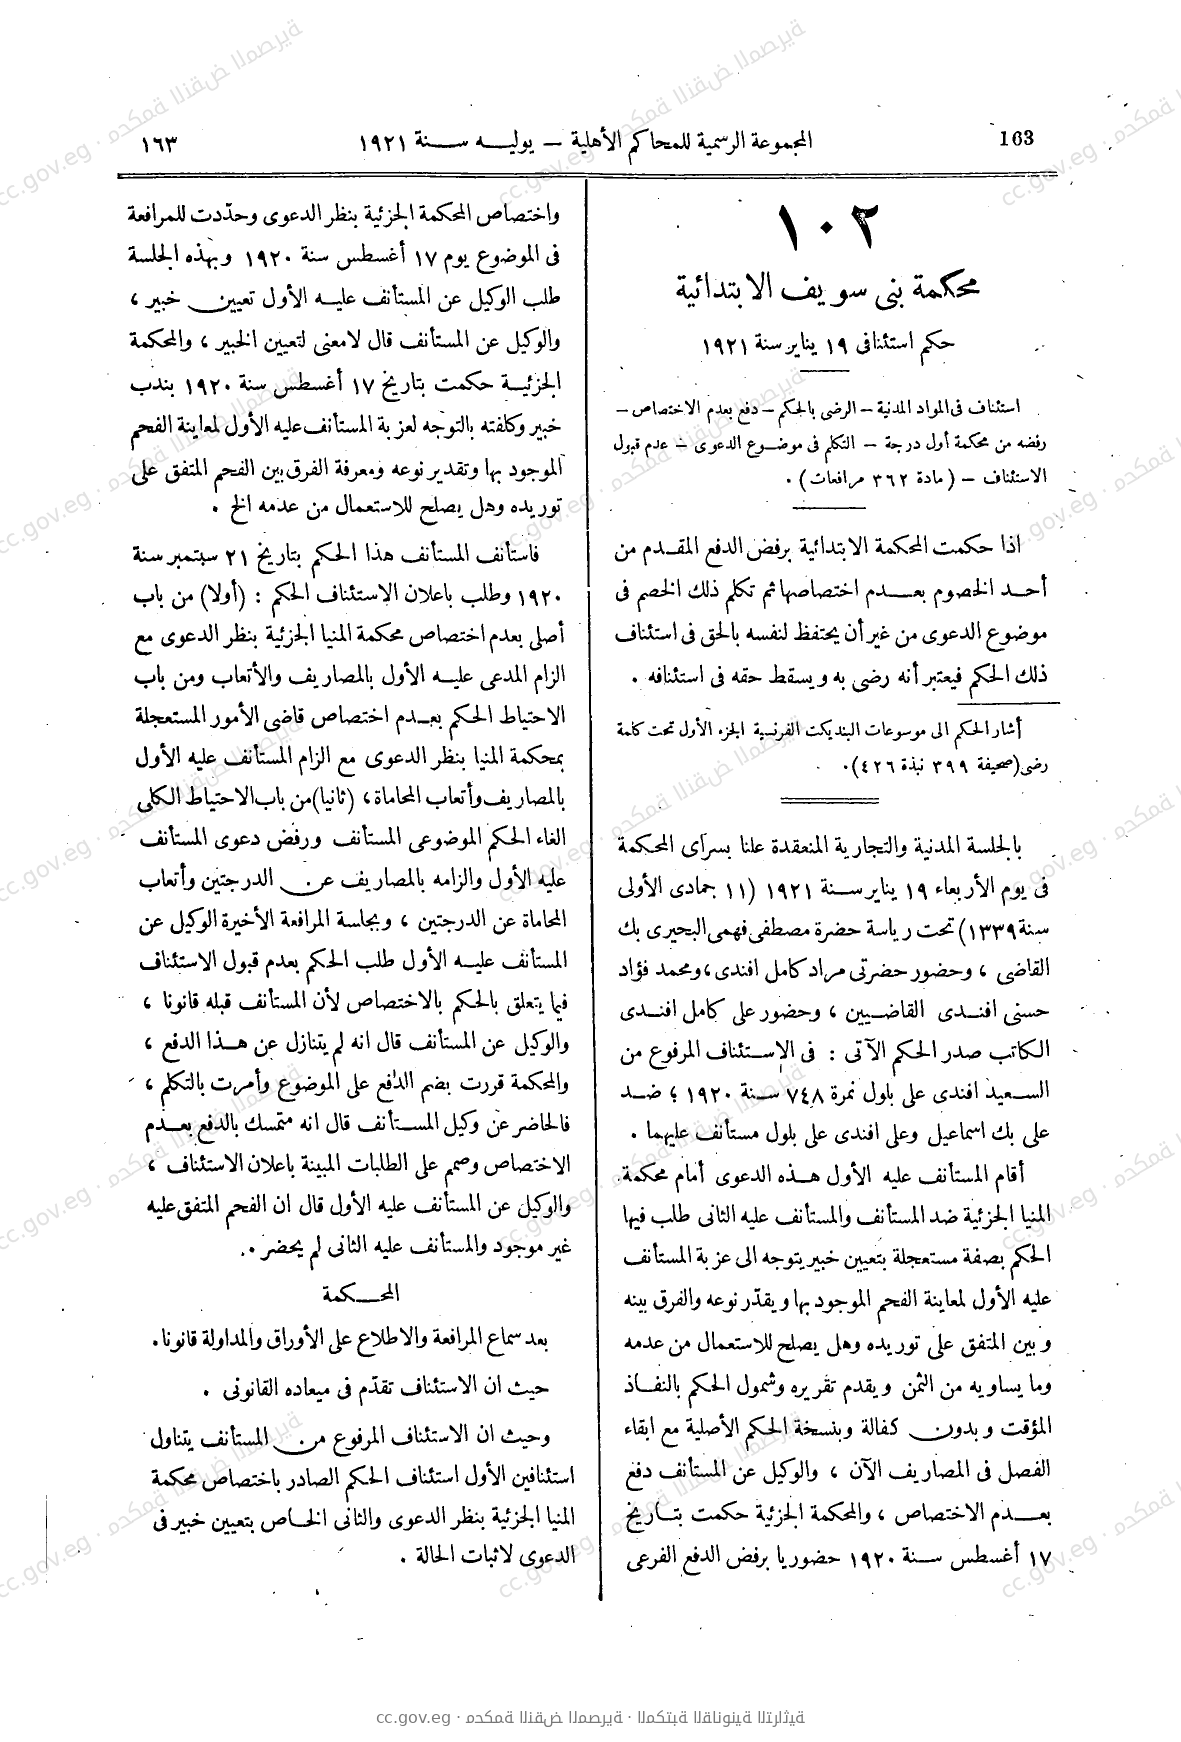 163
المجموعة الرسمية للمحاكم الأهلية – يوليه سنة ١٩٢١
١٦٣
١٠٢
محكمة بنى سويف الابتدائية
حكم استئنافى ١٩ يناير سنة ١٩٢١
استئناف فى المواد المدنية – الرضى بالحكم – دفع بعدم الاختصاص –
رفضه من محكمة أول درجة – التكلم فى موضوع الدعوى – عدم قبول
الاستئناف – (مادة ٣٦٢ مرافعات) .
اذا حكمت المحكمة الابتدائية برفض الدفع المقدم من
أحد الخصوم بعدم اختصاصها ثم تكلم ذلك الخصم فى
موضوع الدعوى من غير أن يحتفظ لنفسه بالحق فى استئناف
ذلك الحكم فيعتبر أنه رضى به ويسقط حقه فى استئنافه .
أشار الحكم الى موسوعات البنديكت الفرنسية الجزء الأول تحت كلمة
رضى (صحيفة ٣٩٩ نبذة ٤٢٦) .
بالجلسة المدنية والتجارية المنعقدة علنا بسراى المحكمة
فى يوم الأربعاء ١٩ يناير سنة ١٩٢١ (١١ جمادى الأولى
سنة ١٣٣٩) تحت رياسة حضرة مصطفى فهمى البحيرى بك
القاضى ، وحضور حضرتى مراد كامل افندى ، ومحمد فؤاد
حسنى افندى القاضيين ، وحضور على كامل افندى
الكاتب صدر الحكم الآتى : فى الإستئناف المرفوع من
السعيد افندى على بلول نمرة ٧٤٨ سنة ١٩٢٠ ؛ ضد
على بك اسماعيل وعلى افندى على بلول مستأنف عليهما .
أقام المستأنف عليه الأول هذه الدعوى أمام محكمة
المنيا الجزئية ضد المستأنف والمستأنف عليه الثانى طلب فيها
الحكم بصفة مستعجلة بتعيين خبير يتوجه الى عزبة المستأنف
عليه الأول لمعاينة الفحم الموجود بها ويقدّر نوعه والفرق بينه
وبين المتفق على توريده وهل يصلح للاستعمال من عدمه
وما يساويه من الثمن ويقدم تقريره وشمول الحكم بالنفاذ
المؤقت وبدون كفالة وبنسخة الحكم الأصلية مع ابقاء
الفصل فى المصاريف الآن ، والوكيل عن المستأنف دفع
بعدم الاختصاص ، والمحكمة الجزئية حكمت بتاريخ
١٧ أغسطس سنة ١٩٢٠ حضوريا برفض الدفع الفرعى
واختصاص المحكمة الجزئية بنظر الدعوى وحدّدت للمرافعة
فى الموضوع يوم ١٧ أغسطس سنة ١٩٢٠ وبهذه الجلسة
طلب الوكيل عن المستأنف عليه الأول تعيين خبير ،
والوكيل عن المستأنف قال لامعنى لتعيين الخبير ، والمحكمة
الجزئية حكمت بتاريخ ١٧ أغسطس سنة ١٩٢٠ بندب
خبير وكلفته بالتوجه لعزبة المستأنف عليه الأول لمعاينة الفحم
الموجود بها وتقدير نوعه ومعرفة الفرق بين الفحم المتفق على
توريده وهل يصلح للاستعمال من عدمه الخ .
فاستأنف المستأنف هذا الحكم بتاريخ ٢١ سبتمبر سنة
١٩٢٠ وطلب باعلان الاستئناف الحكم : (أولا) من باب
أصلى بعدم اختصاص محكمة المنيا الجزئية بنظر الدعوى مع
الزام المدعى عليه الأول بالمصاريف والأتعاب ومن باب
الاحتياط الحكم بعدم اختصاص قاضى الأمور المستعجلة
بمحكمة المنيا بنظر الدعوى مع الزام المستأنف عليه الأول
بالمصاريف وأتعاب المحاماة ، (ثانيا) من باب الاحتياط الكلى
الغاء الحكم الموضوعى المستأنف ورفض دعوى المستأنف
عليه الأول والزامه بالمصاريف عن الدرجتين وأتعاب
المحاماة عن الدرجتين ، وبجلسة المرافعة الأخيرة الوكيل عن
المستأنف عليه الأول طلب الحكم بعدم قبول الاستئناف
فيما يتعلق بالحكم بالاختصاص لأن المستأنف قبله قانونا ،
والوكيل عن المستأنف قال انه لم يتنازل عن هذا الدفع ،
والمحكمة قررت بضم الدفع على الموضوع وأمرت بالتكلم ،
فالحاضر عن وكيل المستأنف قال انه متمسك بالدفع بعدم
الاختصاص وصمم على الطلبات المبينة باعلان الاستئناف ،
والوكيل عن المستأنف عليه الأول قال ان الفحم المتفق عليه
غير موجود والمستأنف عليه الثانى لم يحضر .
المحكمة
بعد سماع المرافعة والاطلاع على الأوراق والمداولة قانونا .
حيث ان الاستئناف تقدّم فى ميعاده القانونى .
وحيث ان الاستئناف المرفوع من المستأنف يتناول
استئنافين الأول استئناف الحكم الصادر باختصاص محكمة
المنيا الجزئية بنظر الدعوى والثانى الخاص بتعيين خبير فى
الدعوى لاثبات الحالة .
cc.gov.eg · محكمة النقض المصرية · المكتبة القانونية التراثية